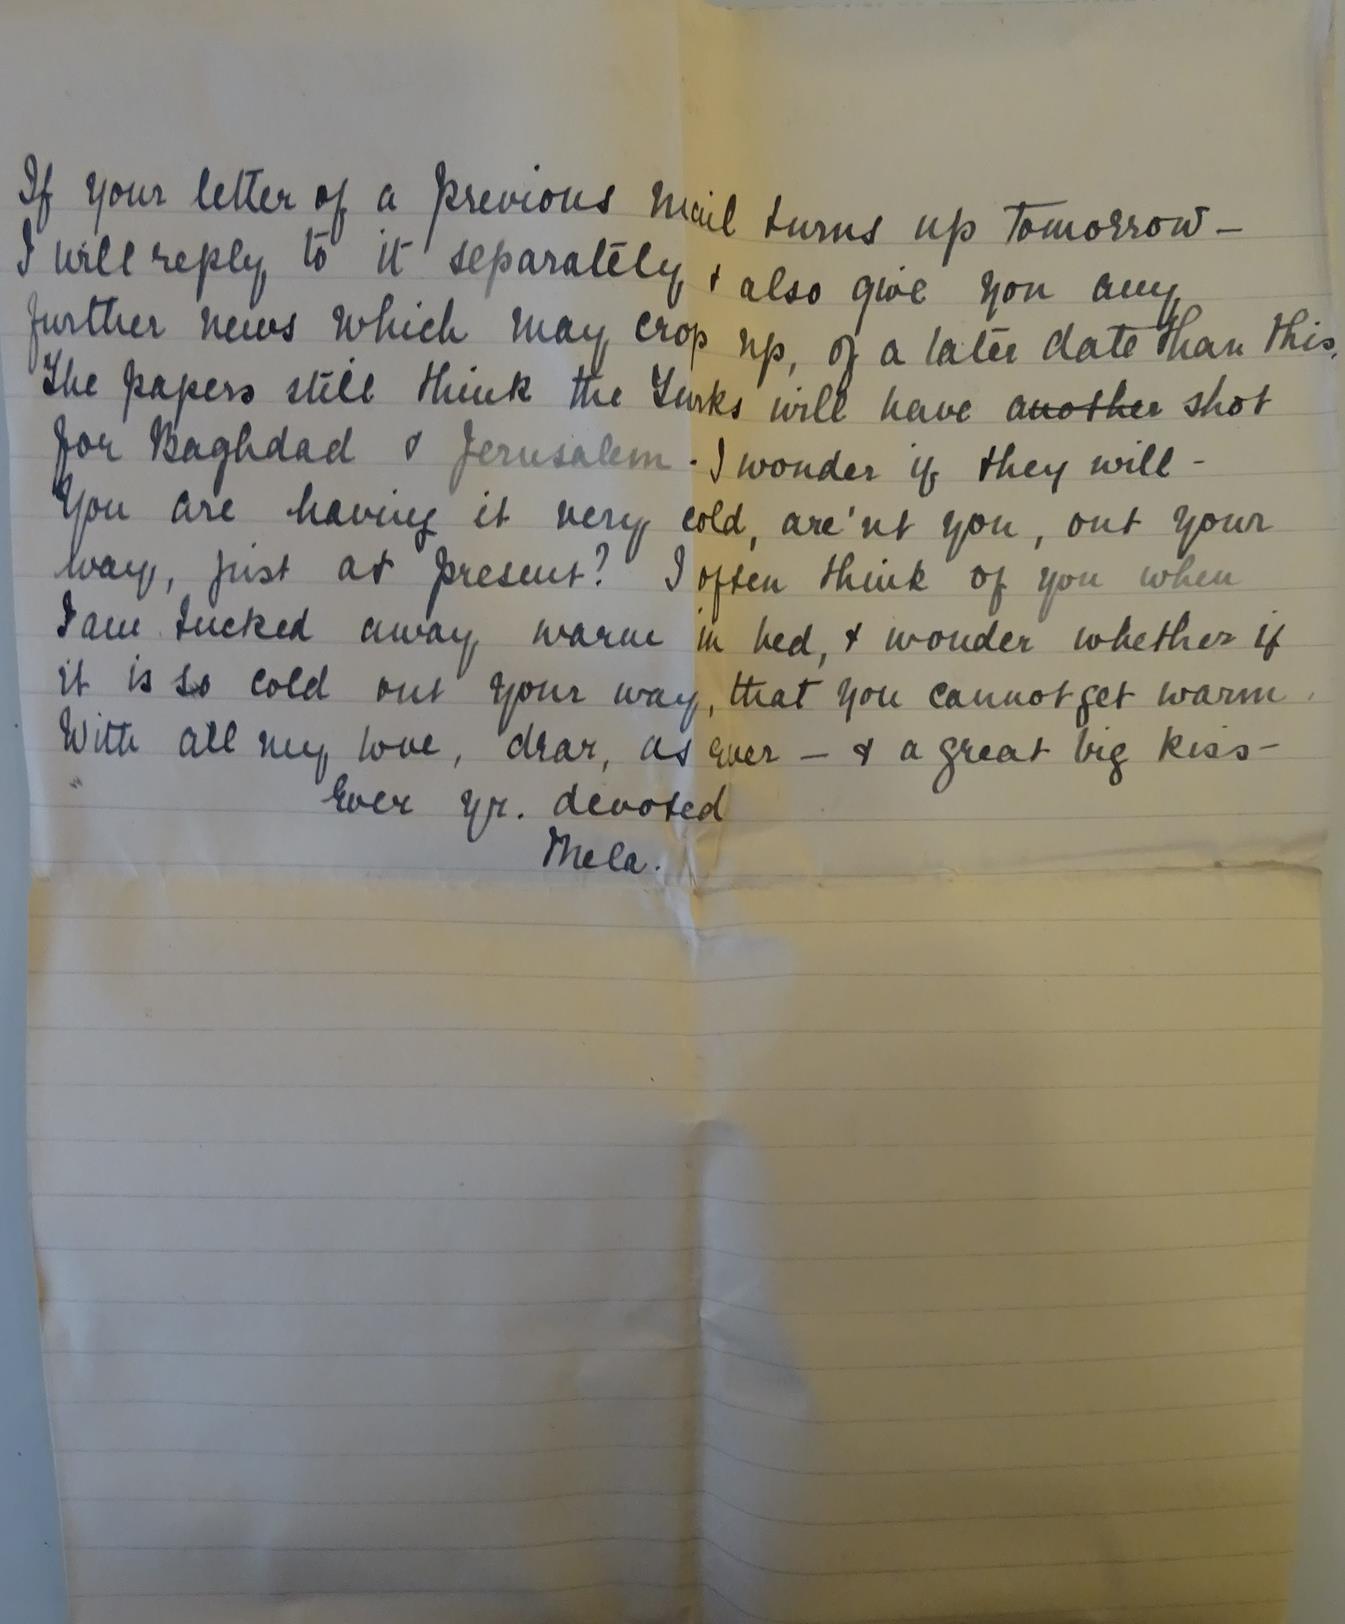 If your letter of a previous mail turns up tomorrow –
I will reply to it separately & also give you any
further news which may crop up, of a later date than this.
The papers still think the Turks will have another shot
for Baghdad & Jerusalem. I wonder if they will –
You are having it very cold, are'nt you, out your
way, just at present? I often think of you when
I am tucked away warm in bed, & wonder whether if
it is so cold out your way, that you cannot get warm.
With all my love, dear, as ever – & a great big kiss –
Ever yr. devoted
Mela.